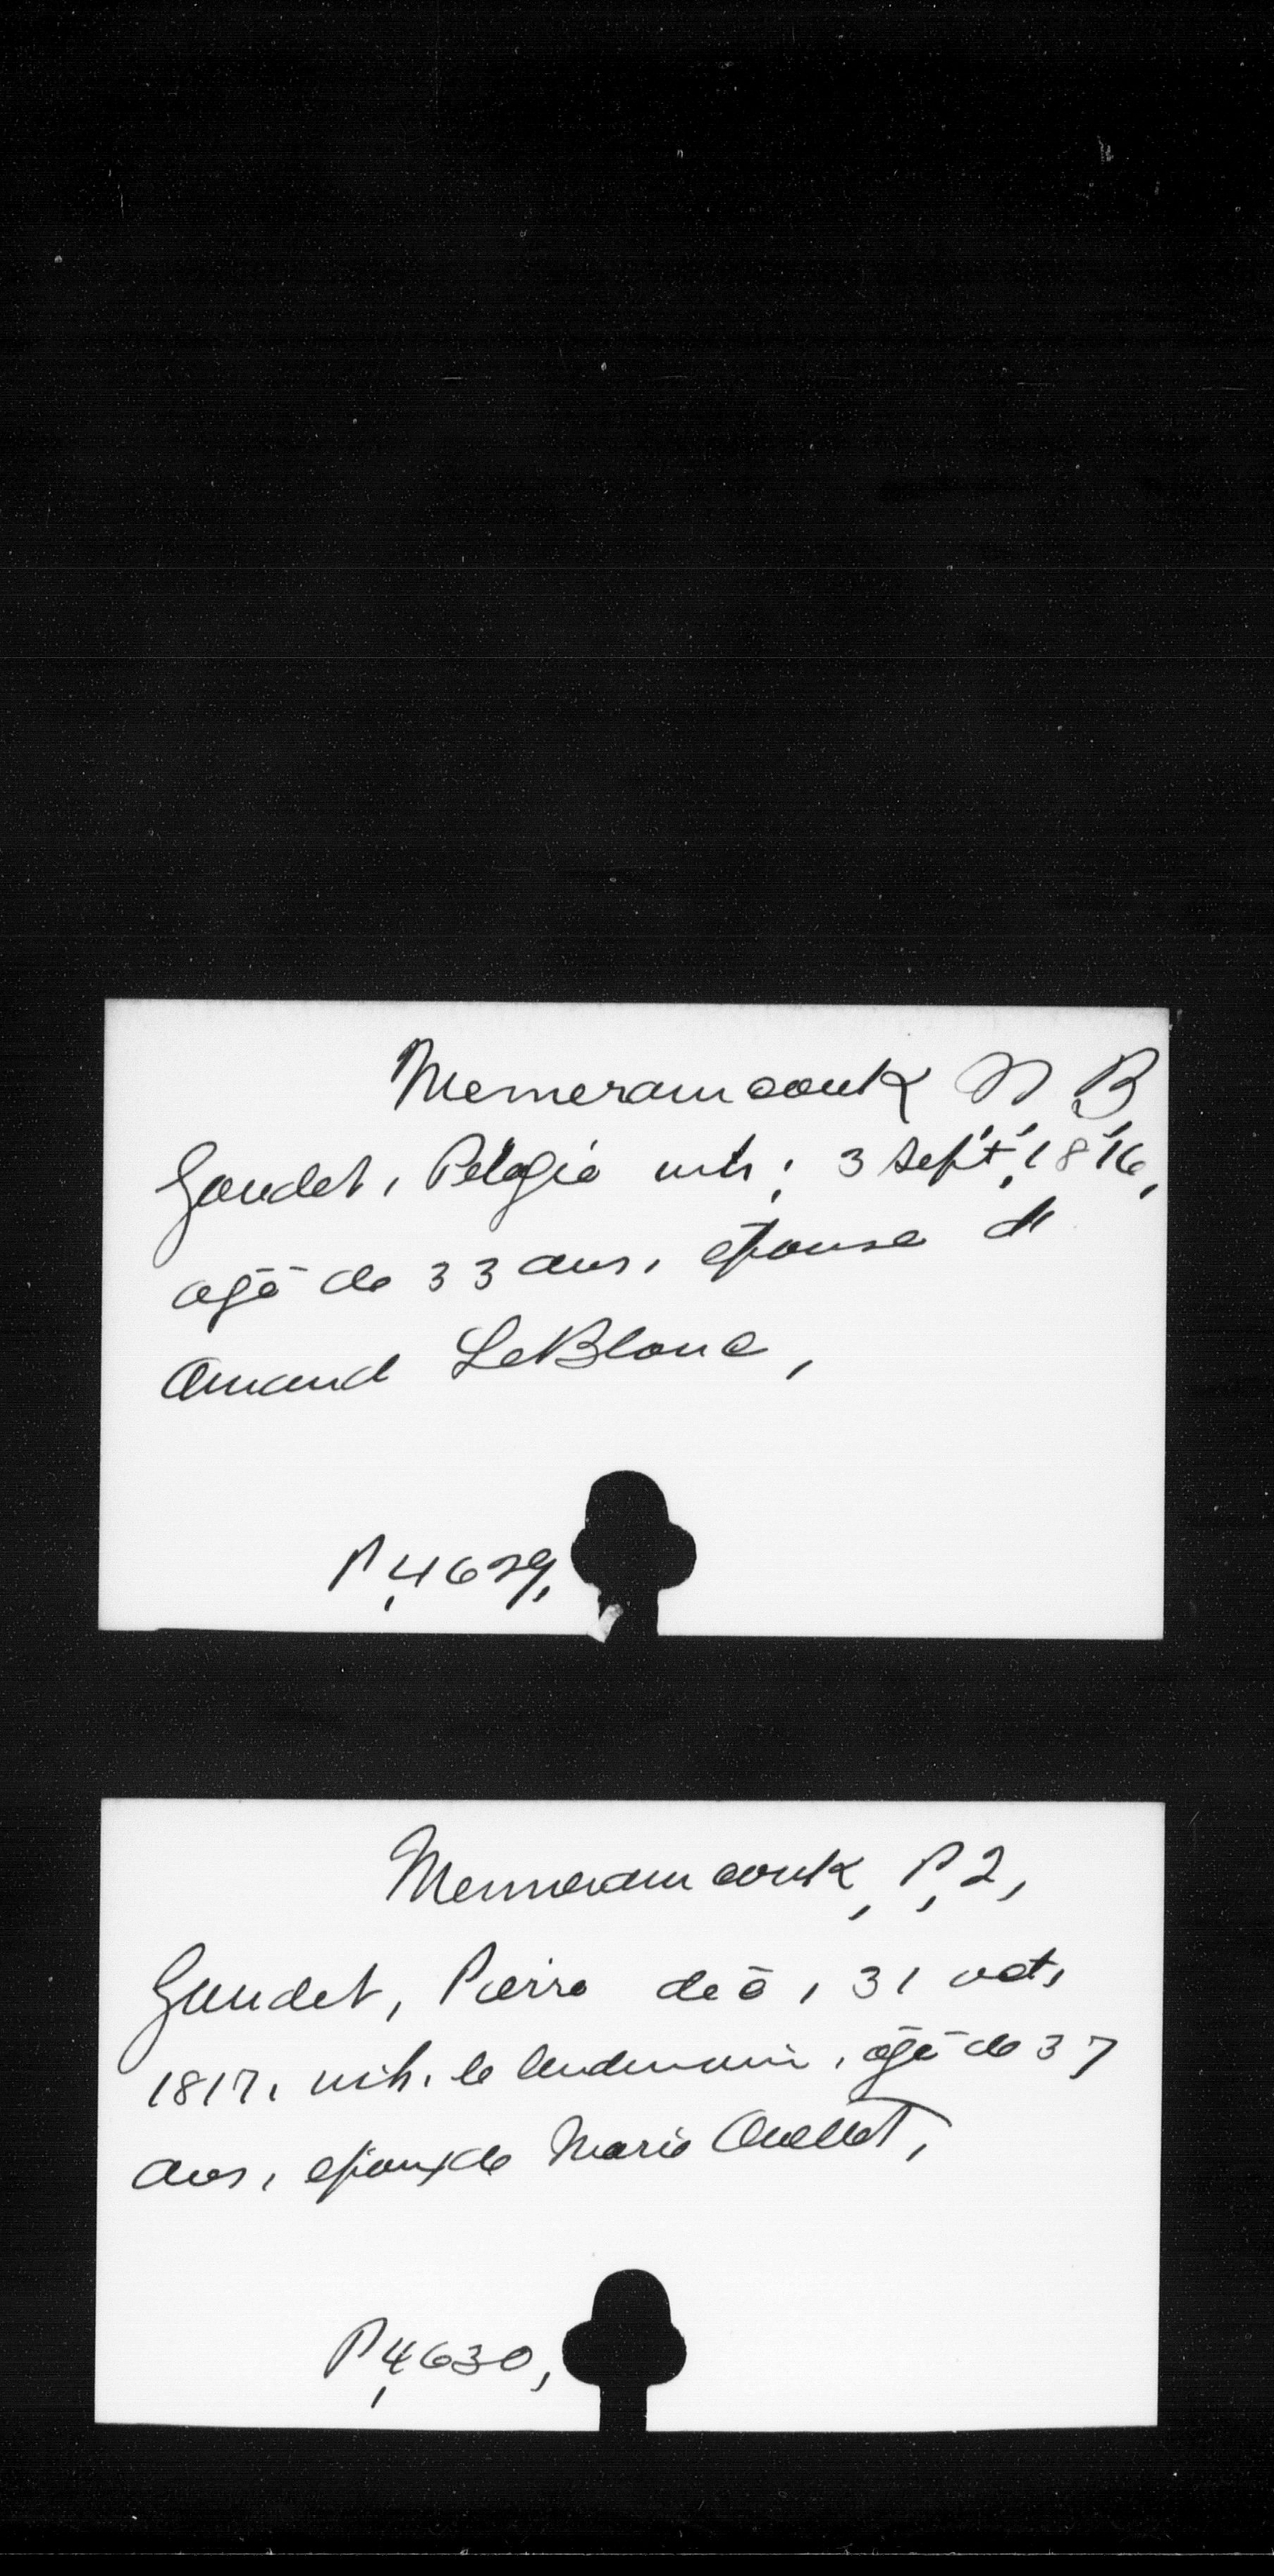 Memeramcouk N. B.
Gaudet, Pélagie inh. 3 Sept. 1816,
agé de 33 ans, épouse de
Amand LeBlanc,
P. 4629.
Memeramcouk, P. 2,
Gaudet, Pierre dé é, 31 oct.
1817, inh. le lendemain, agé de 37
ans, epoux de Marie Ouellet,
P. 4630,